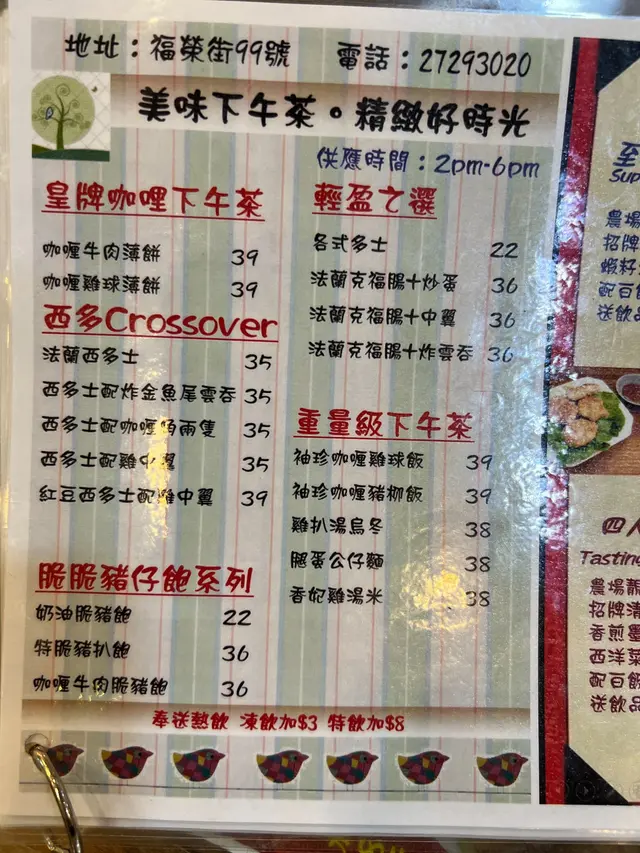 地址：福榮街99號 電話：27293020
美味下午茶。精緻好時光
供應時間：2pm-6pm
皇牌咖哩下午茶
咖喱牛肉薄餅 39
咖喱雞球薄餅 39
西多Crossover
法蘭西多士 35
西多士配炸金魚尾雲吞 35
西多士配咖喱 兩隻 35
西多士配雞中翼 35
紅豆西多士配雞中翼 39
脆脆豬仔飽系列
奶油脆豬飽 22
特脆豬扒飽 36
咖喱牛肉脆豬飽 36
輕盈之選
各式多士 22
法蘭克福腸十炒蛋 36
法蘭克福腸十中翼 36
法蘭克福腸十炸雲吞 36
重量級下午茶
袖珍咖喱雞球飯 39
袖珍咖喱豬柳飯 39
雞扒湯烏冬 38
腿蛋公仔麵 38
香妃雞湯米 38
奉送熱飲 凍飲加$3 特飲加$8
至
Sup
農場
招牌
蝦籽
配百
送飲品
四人
Tasting
農場
招牌清
香煎墨
西洋菜
配百
送飲品